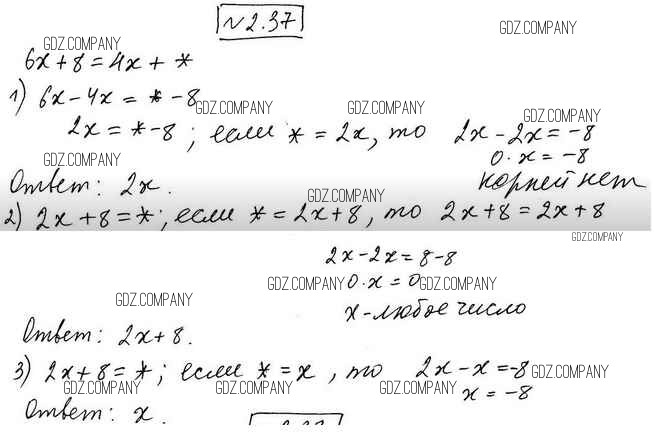 №2.37
GDZ.COMPANY
GDZ.COMPANY
6x+8=4x+*
1) 6x-4x=*-8
GDZ.COMPANY GDZ.COMPANY GDZ.COMPANY
2x=*-8; если *=2x, то 2x-2x=-8
GDZ.COMPANY 0·x=-8
Ответ: 2x. корней нет
GDZ.COMPANY
2) 2x+8=*; если *=2x+8, то 2x+8=2x+8
GDZ.COMPANY
2x-2x=8-8
GDZ.COMPANY 0·x=0 GDZ.COMPANY
GDZ.COMPANY x-любое число
Ответ: 2x+8.
3) 2x+8=*; если *=x, то 2x-x=-8 GDZ.COMPANY
GDZ.COMPANY GDZ.COMPANY GDZ.COMPANY x=-8
Ответ: x.